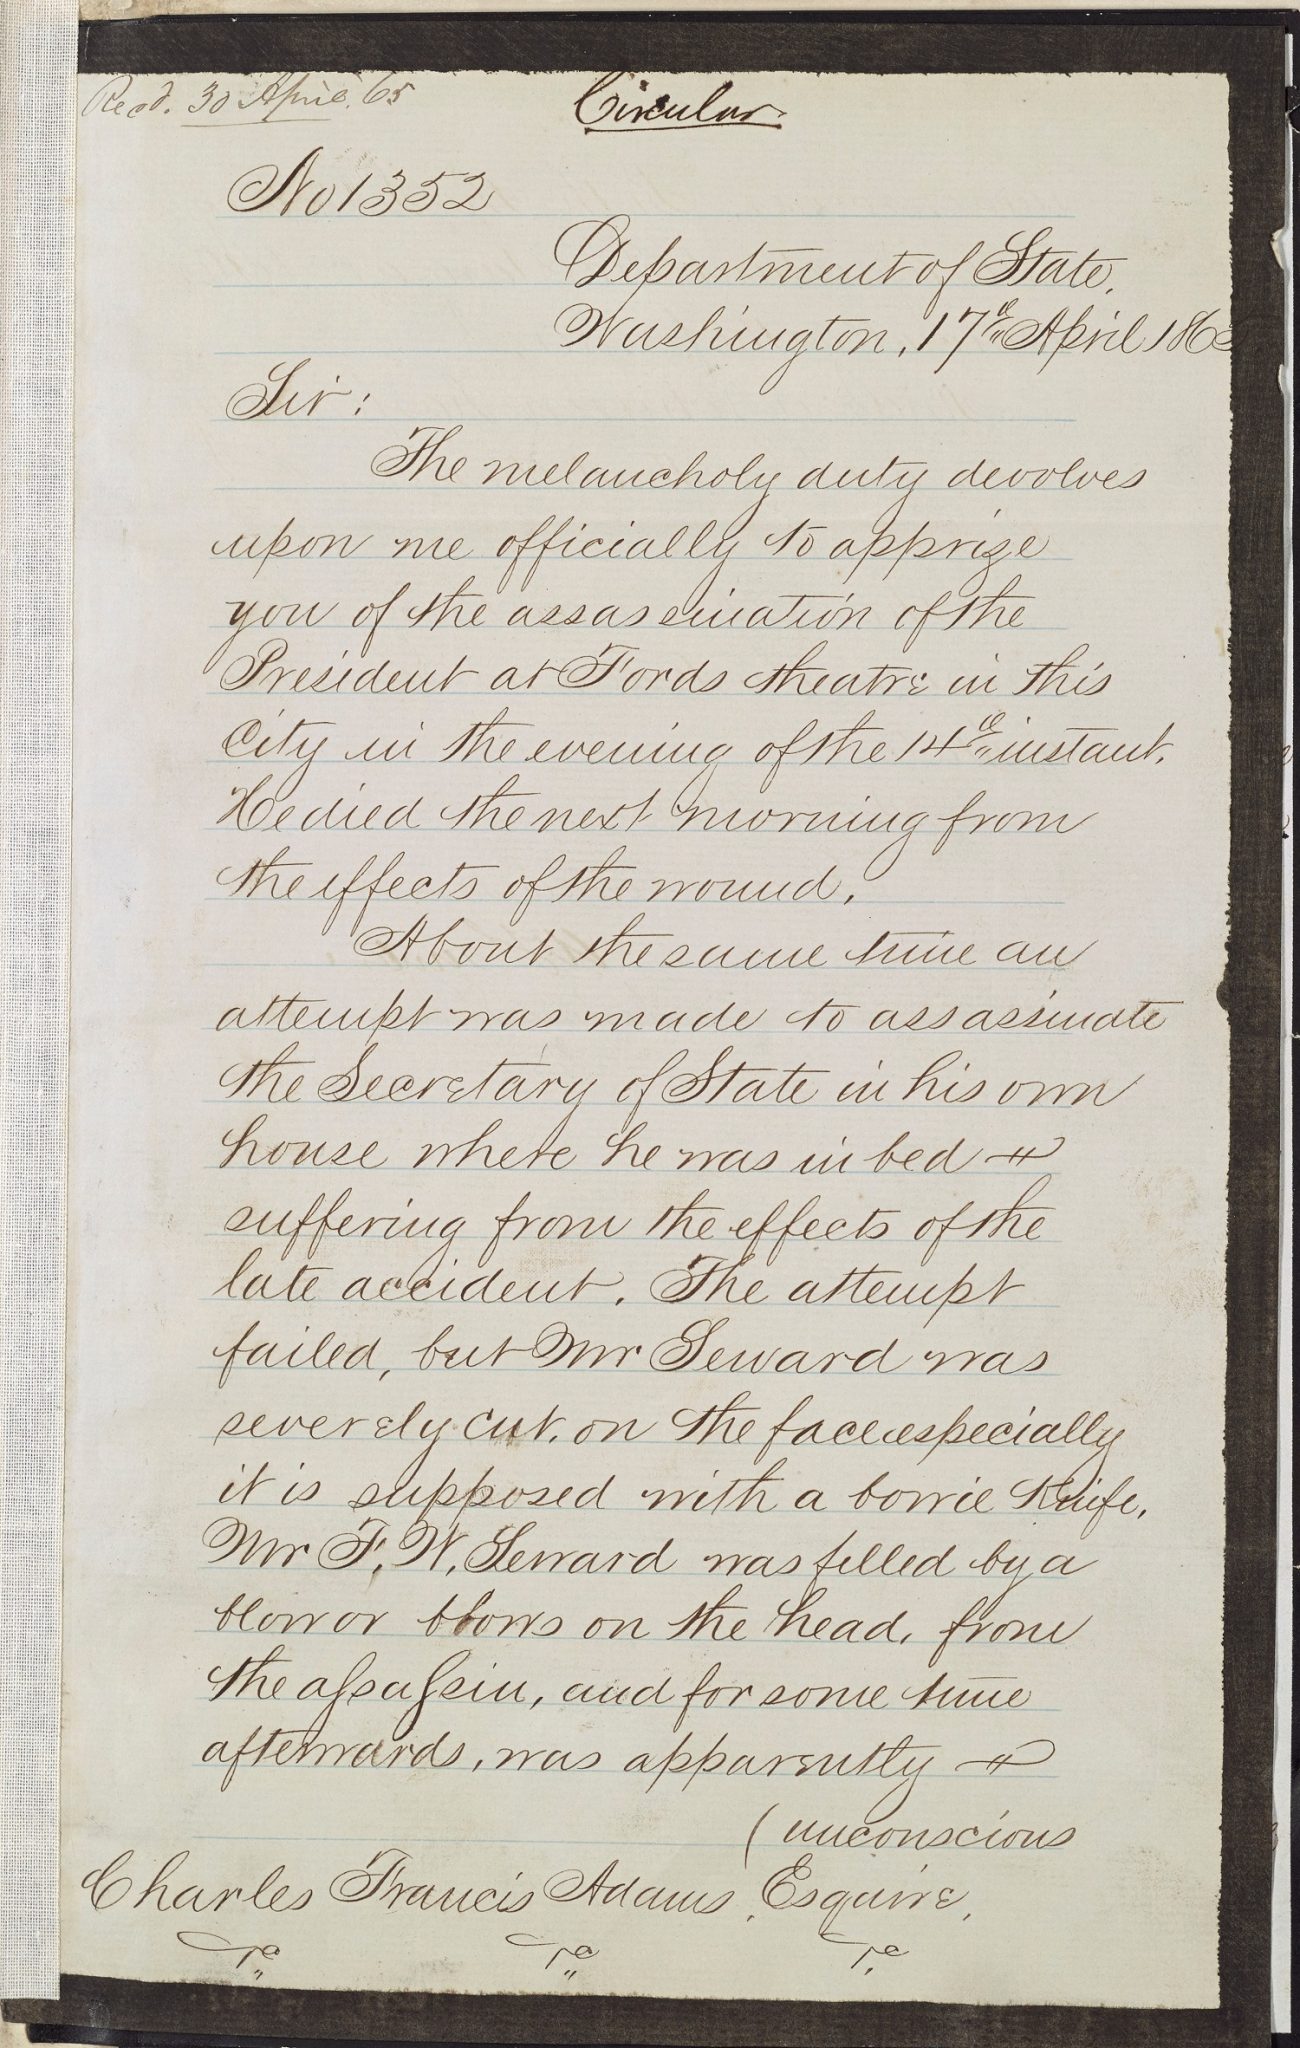 Recd. 30 April. 65
Circular.
No 1352
Department of State,
Washington, 17th April 1865
Sir:
The melancholy duty devolves
upon me officially to apprize
you of the assassination of the
President at Fords theatre in this
City in the evening of the 14th instant.
He died the next morning from
the effects of the wound.
About the same time an
attempt was made to assassinate
the Secretary of State in his own
house where he was in bed
suffering from the effects of the
late accident. The attempt
failed, but Mr Seward was
severely cut, on the face especially
it is supposed with a bowie Knife.
Mr F. W. Seward was felled by a
blow or blows on the head, from
the assassin, and for some time
afterwards, was apparently
(unconscious
Charles Francis Adams, Esquire,
&c &c &c